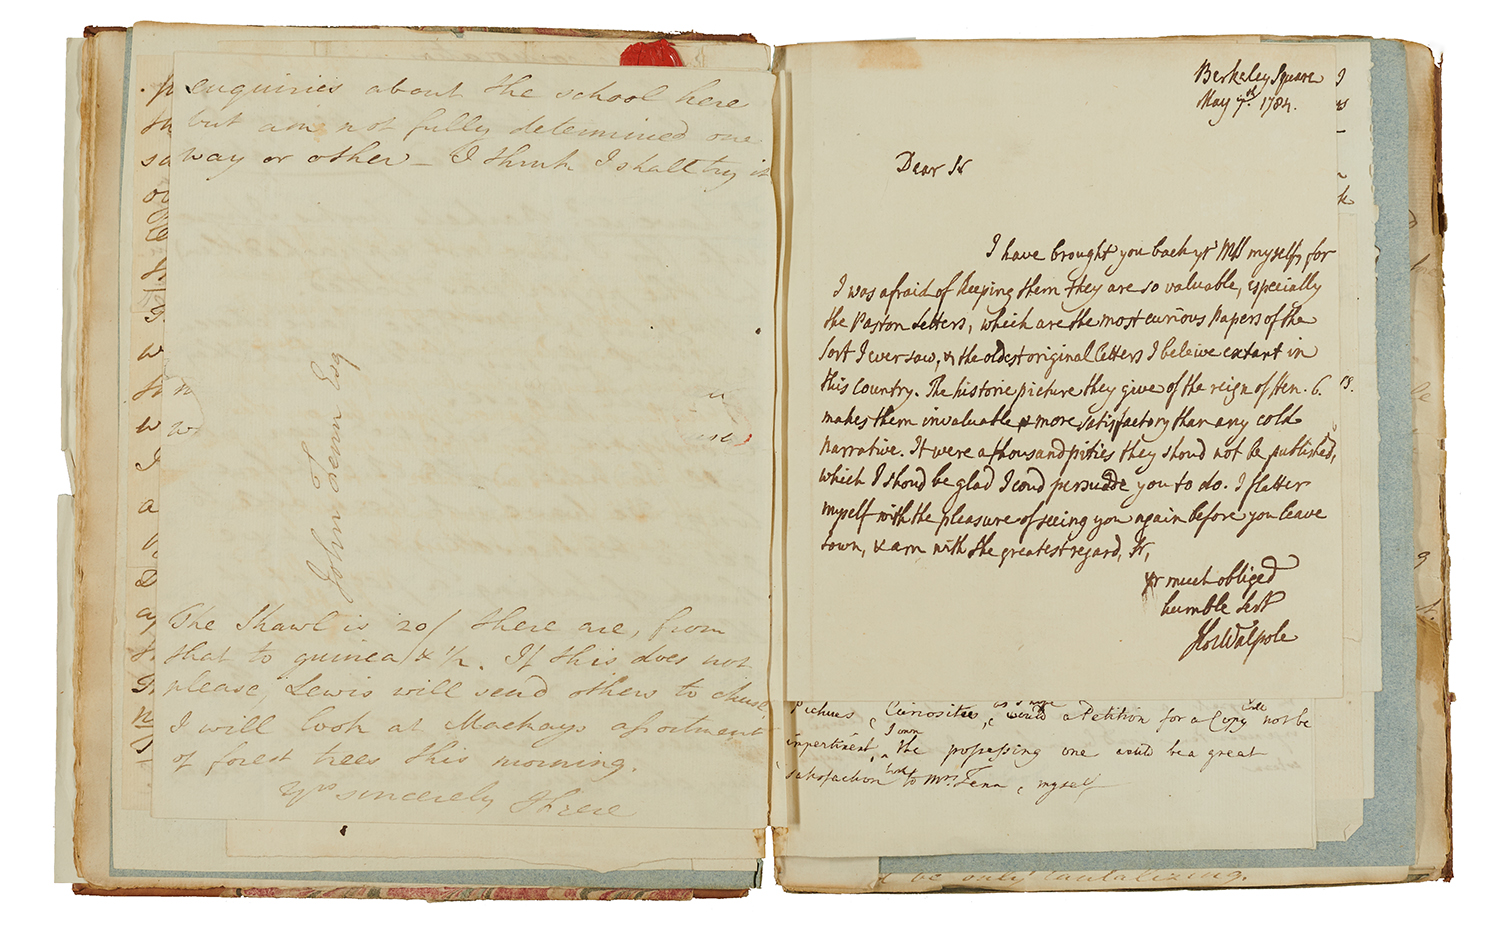 enquiries about the school here
but am not fully determined one
way or other – I think I shall try it
John Fenn Esq
The Shawl is 20/ there are, from
that to guinea & ½. If this does not
please, Lewis will send others to chuse
I will look at Mackays assortment
of forest trees this morning.
Yrs sincerely J Frere
Berkeley Square
May 7th 1784.
Dear Sr
I have brought you back yr MSS myself, for
I was afraid of keeping them they are so valuable, especially
the Paston Letters, which are the most curious Papers of the
sort I ever saw, & the oldest original letters I beleive extant in
this country. The historic picture they give of the reign of Hen. 6.
makes them invaluable & more satisfactory than any cold
narrative. It were a thousand pities they shoud not be published,
which I shoud be glad I coud persuade you to do. I flatter
myself with the pleasure of seeing you again before you leave
town, & am with the greatest regard, Sr,
yr much obliged
humble Sert
Hor Walpole
Pictures, Curiosities, &c would a Petition for a Copy not be
impertinent, I own the possessing one would be a great
satisfaction both to Mrs. Fenn & myself
be only tantalizing.